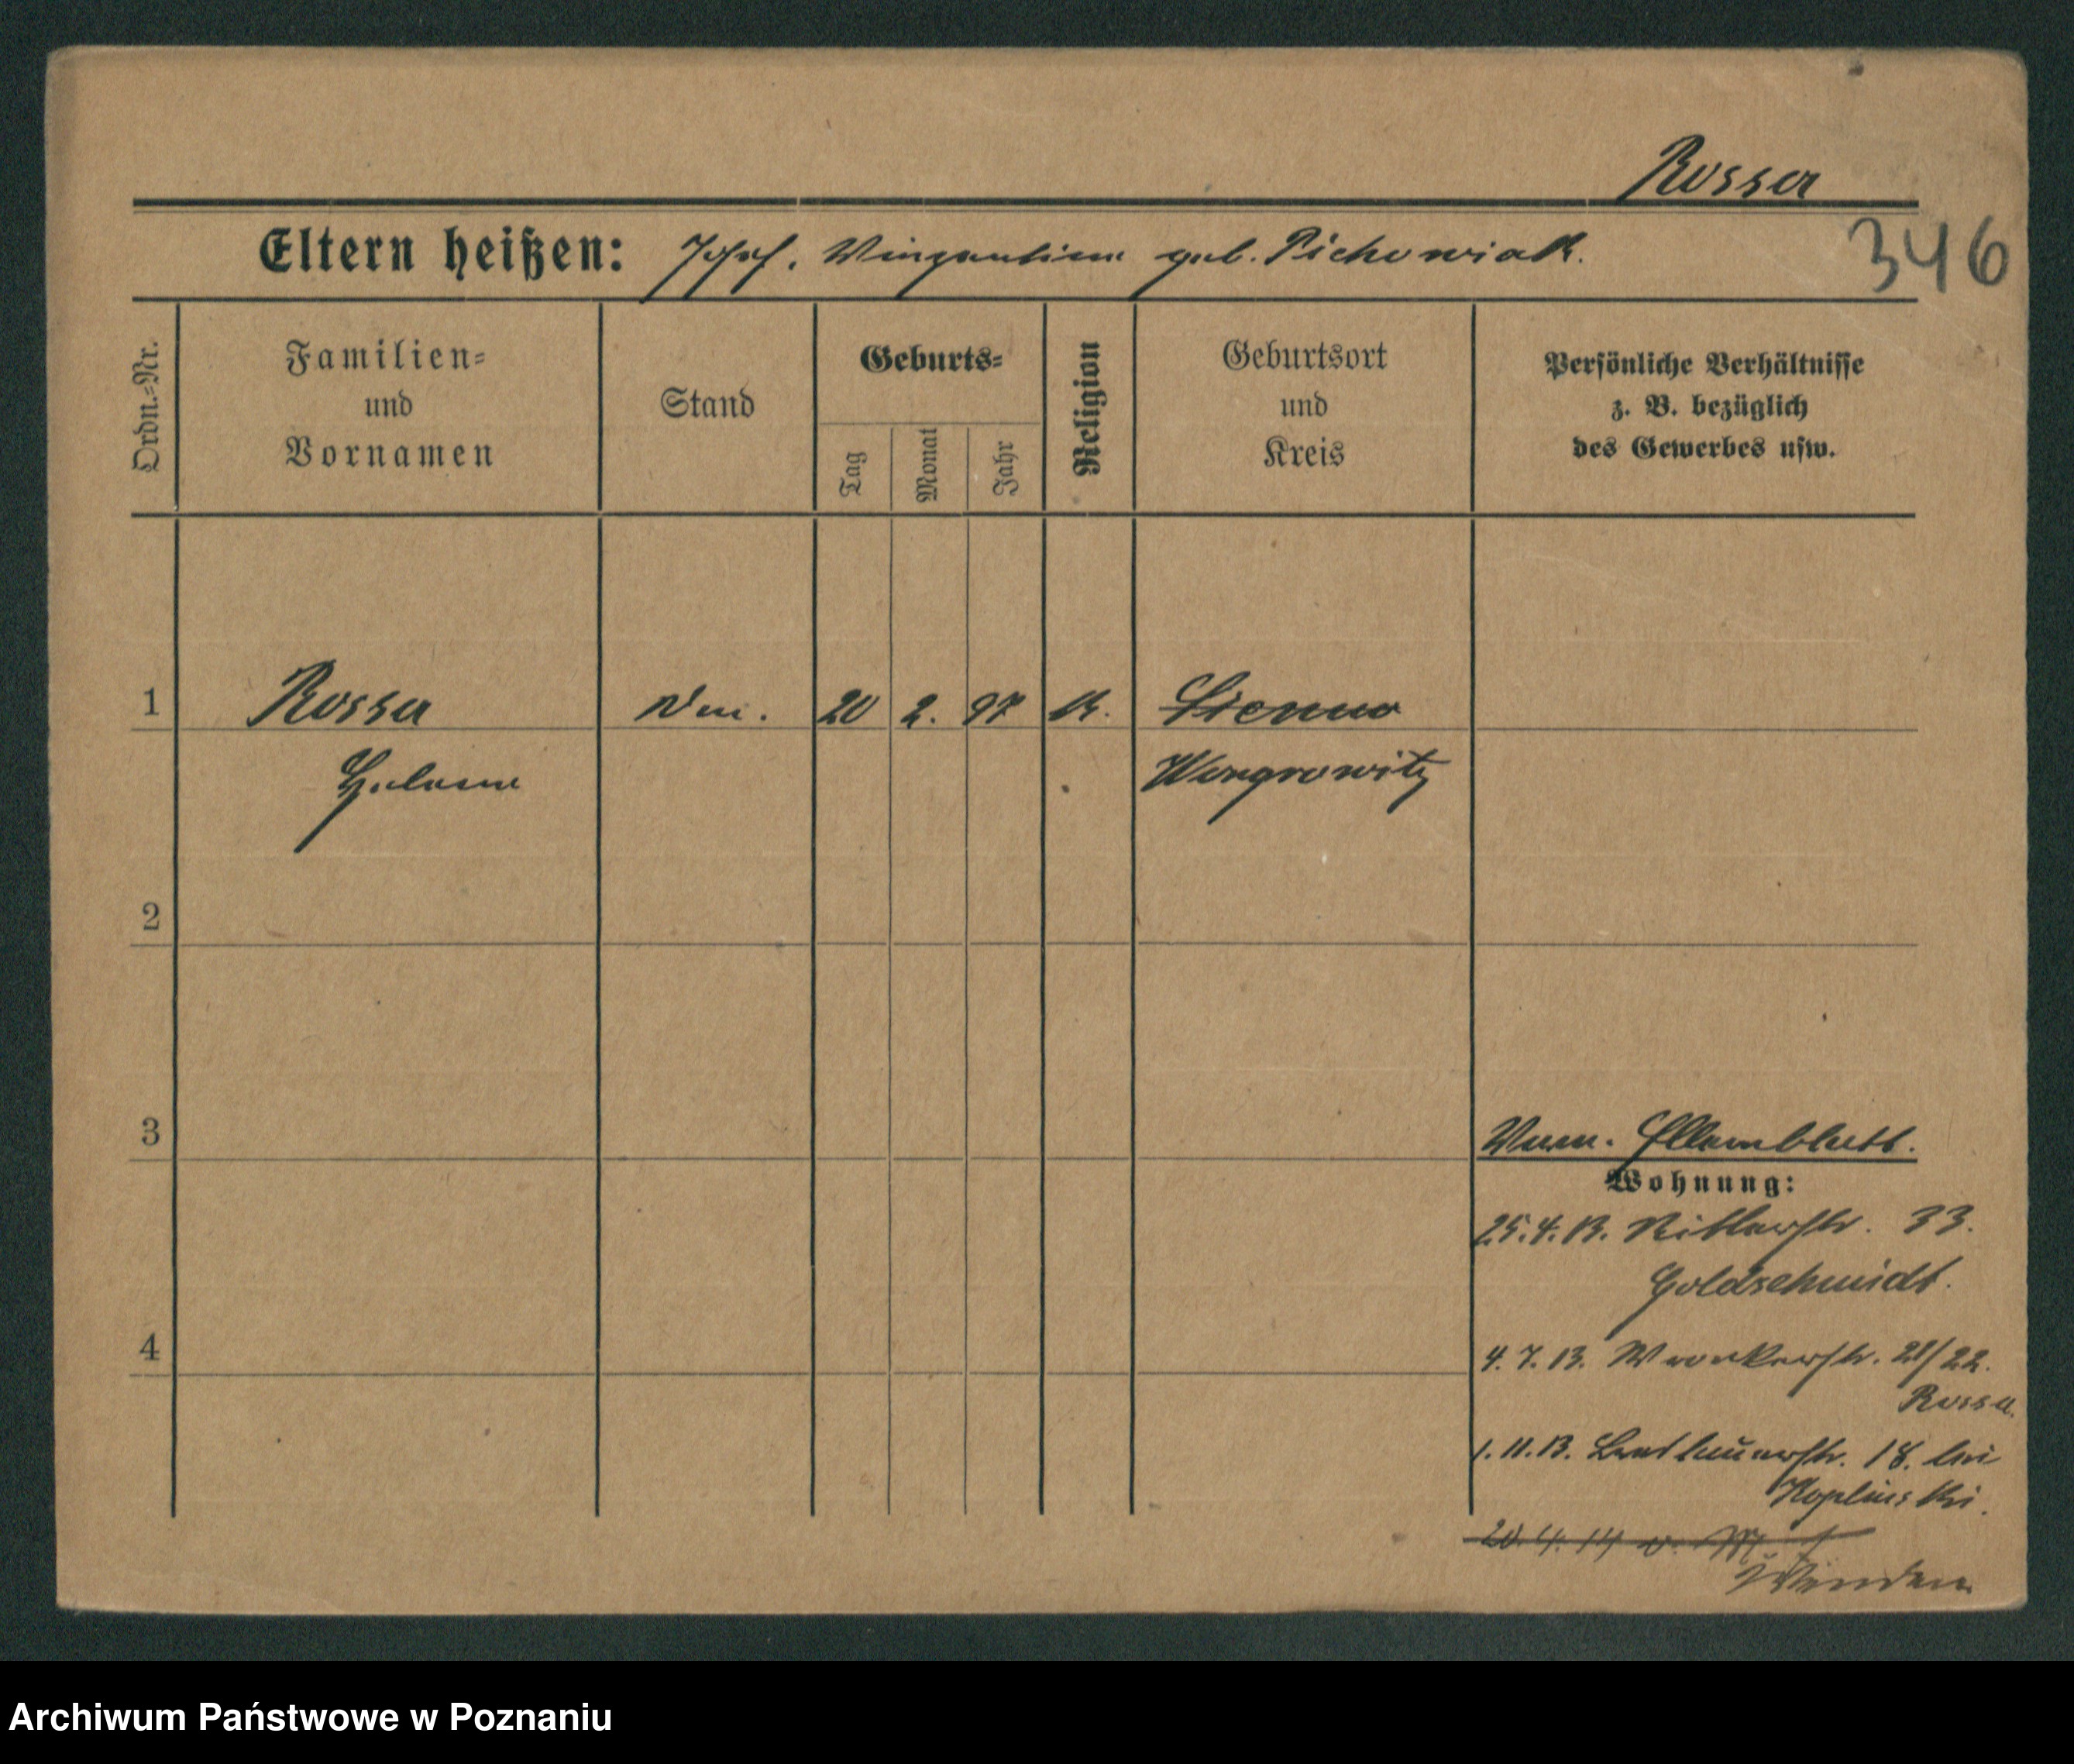 Rossa
Eltern heißen: Josef, Vinzentine geb. Pichowiak.
346
Ordn.-Nr.
Familien-
und
Vornamen
Stand
Geburts-
Tag
Monat
Jahr
Religion
Geburtsort
und
Kreis
Persönliche Verhältnisse
z. B. bezüglich
des Gewerbes usw.
1
Rossa
20
2.
97
K.
Sienno
Helene
Wongrowitz
2
3
Wohnung:
25.4.13. Ritterstr. 33.
Goldschmidt.
4
4.7.13. Wronkerstr. 21/22.
Rossa.
1.11.13. 18. bei
Koplinski.
20.4.14 v.
Archiwum Państwowe w Poznaniu